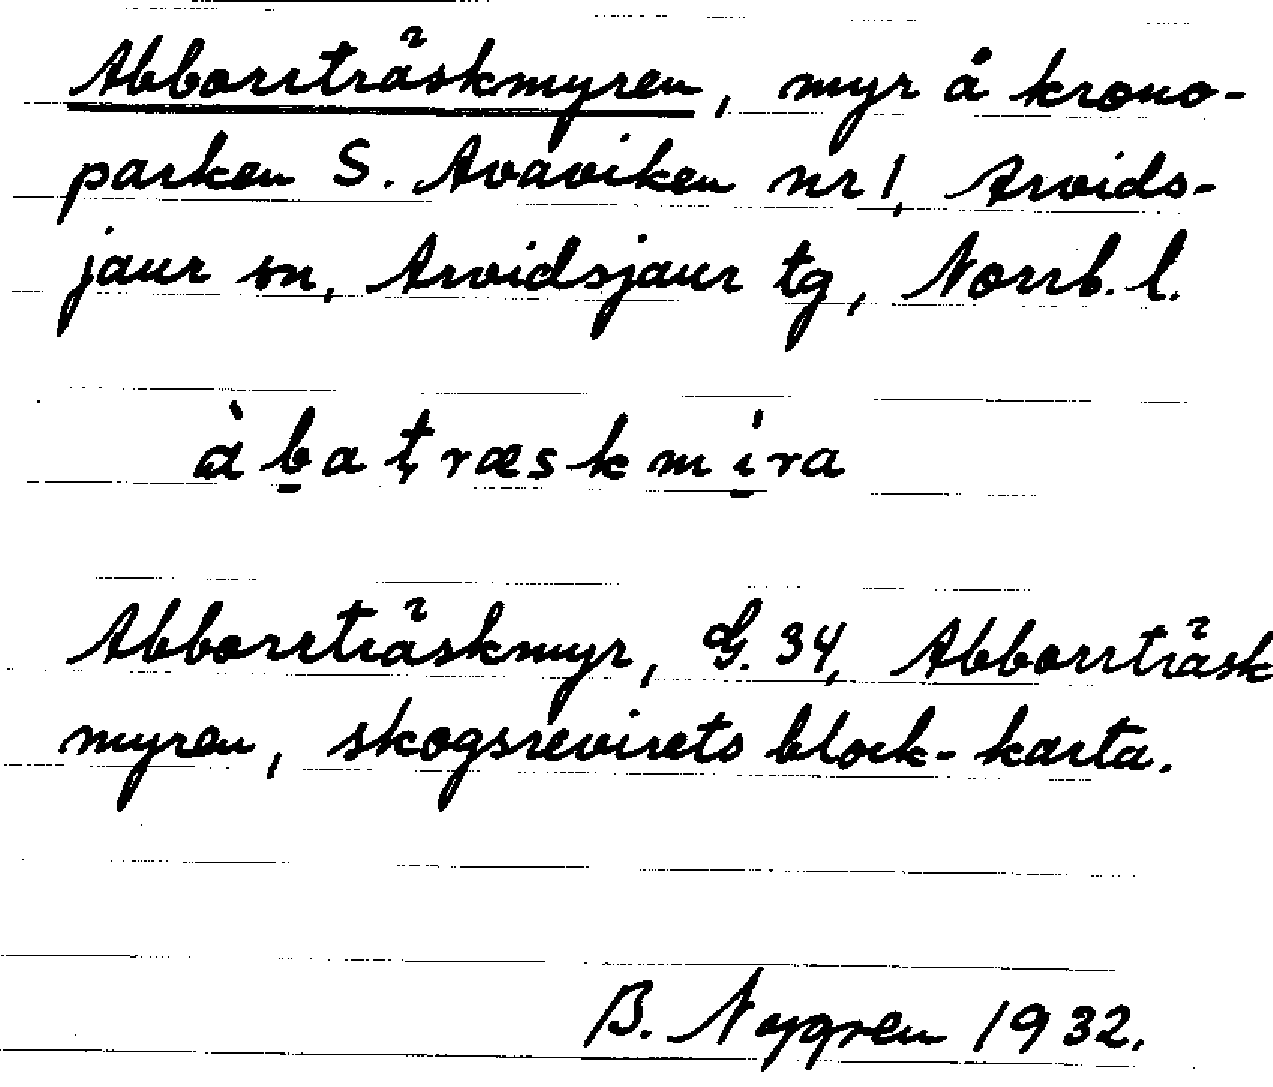 Abborrträskmyren, myr å krono-
parken S. Avaviken nr 1, Arvids-
jaur sn, Arvidsjaur tg, Norrb. l.
àb̲aţræskmi̲ra
Abborrträskmyr, G. 34, Abborrträsk
myren, skogsrevirets block-karta.
B. Nygren 1932.